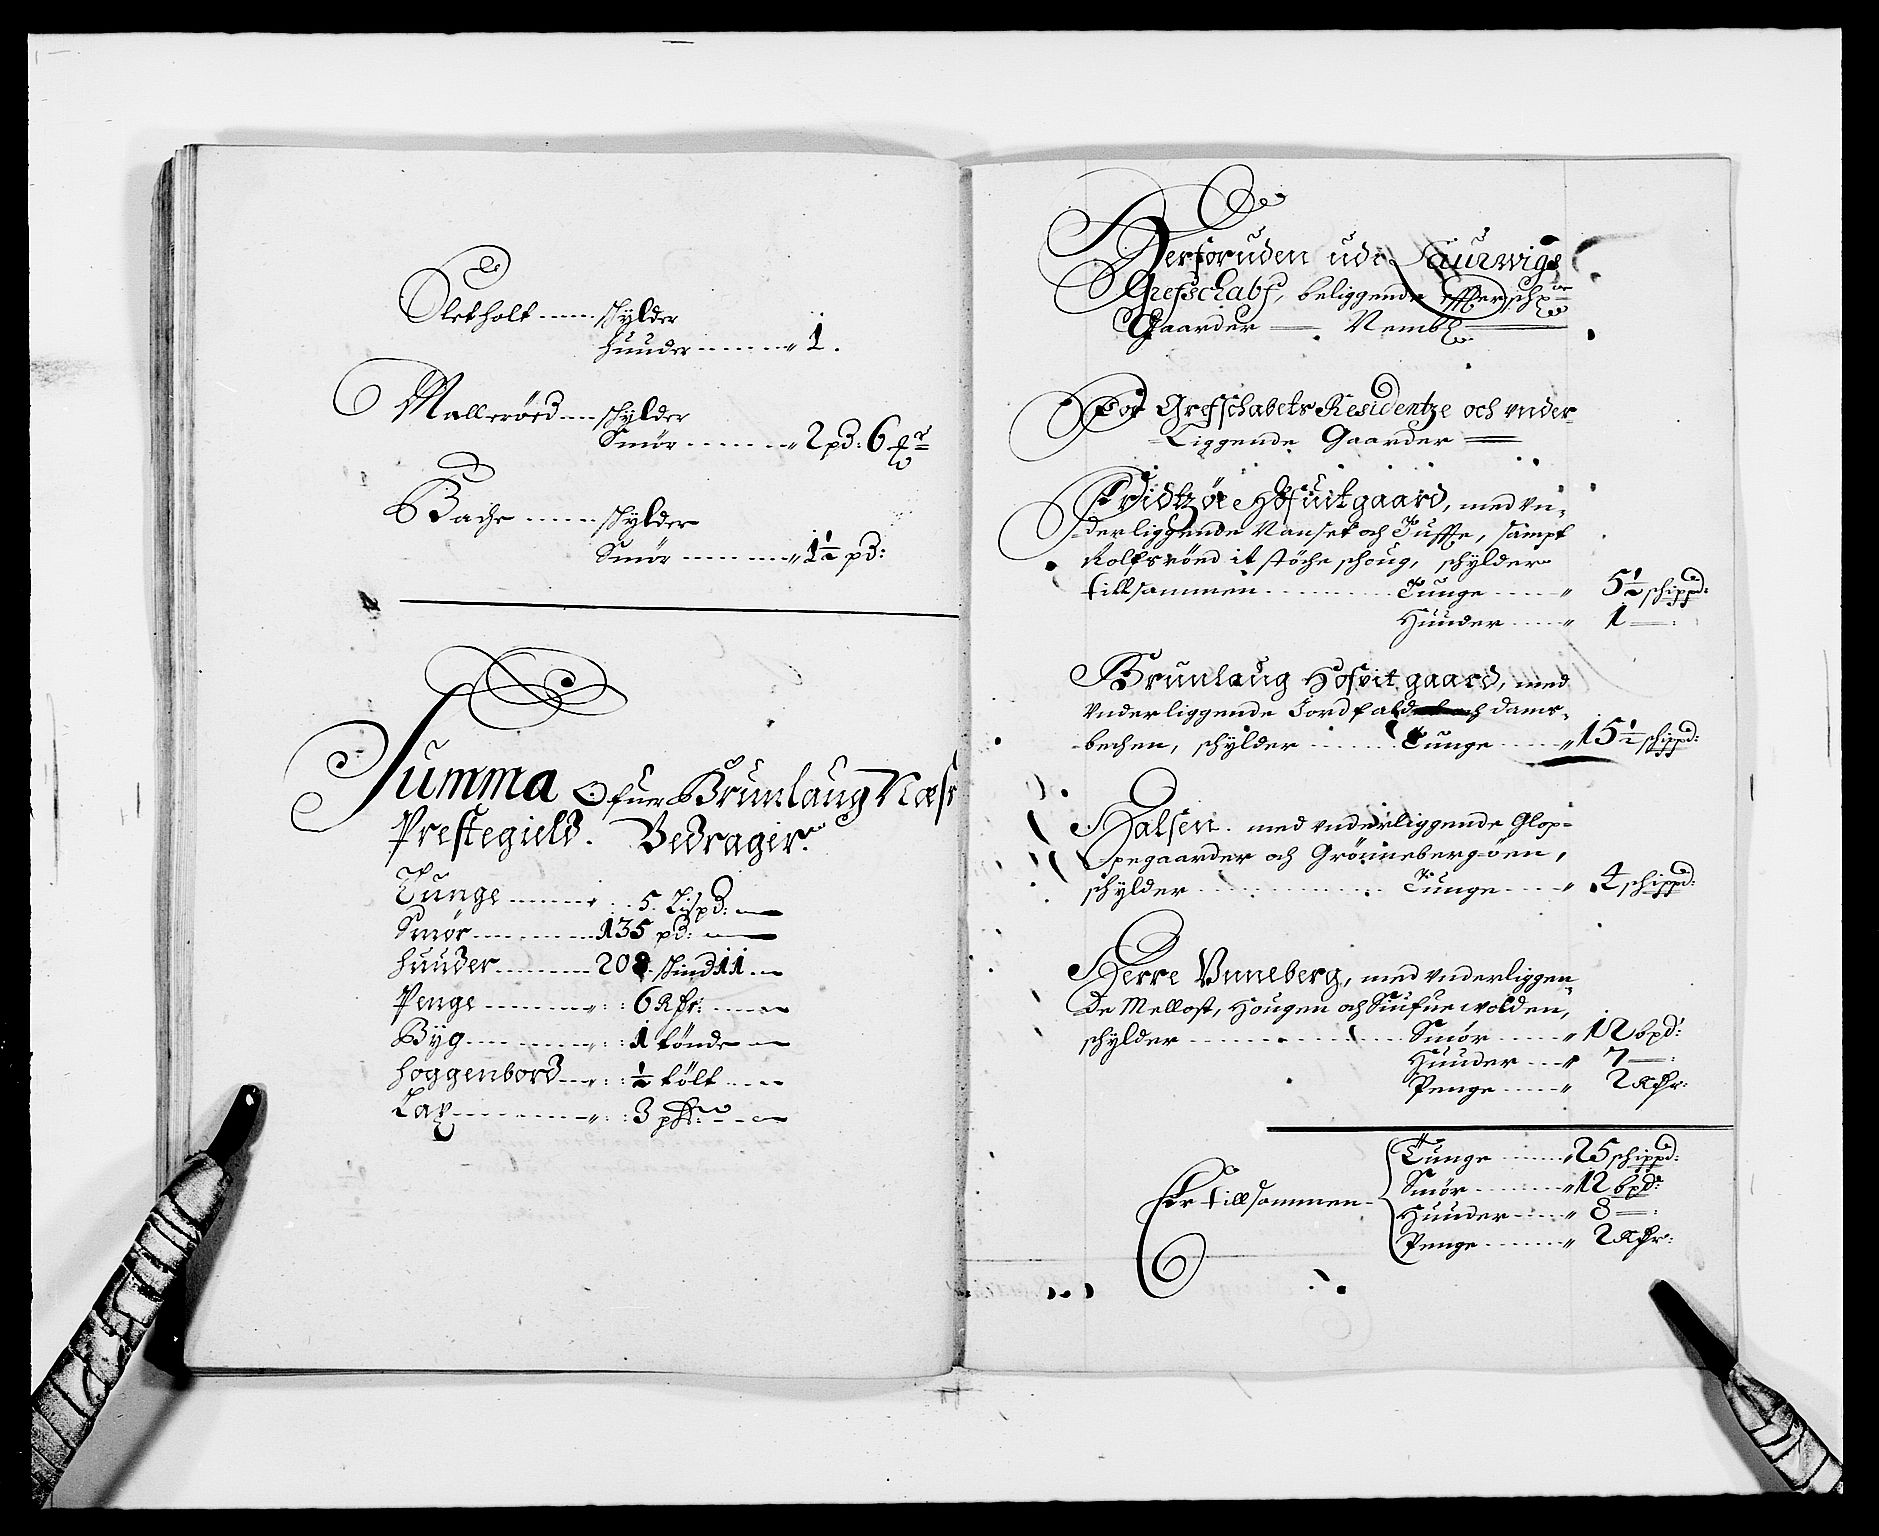 Sletholt ------ schylder
huuder -------- „ 1.
Malleröed ---- schylder
Smör -------- „ 2 pd: 6
Bache ------ schylder
Smör -------- „ 1½ pd:
Summa Ofuer Brunlaug Næss
Prestegield. Bedrager.
Tunge -------- „ : 5. Lispd: —
Smör ---------- 135 pd: —
huuder -------- 208. skind 11 —
Penge -------- „ : 6 Rdr: —
Byg --------- „ : 1 tönde —
hoggenbord --- „ : ½ tölt —
Lax --------- „ : 3 —
Herforuden udi Laurwigs
Grefschabf, beliggende efter:
Gaarder — Nembl
For Grefschabets Residentze och vnder-
Liggende Gaarder —
Fridtzöe Hofuitgaard, med vn-
derliggende Nanset och Tuffte, sampt
Rolfsröed it støche schoug, schylder
tillsammen ---------- Tunge ----- „ 5½ schippd:
Huuder ----- „ 1 — :
Brunlaug Hofvitgaard, med
vnderliggende Jordfald dams-
bechen, schylder ------- Tunge ----- „ 15½ schippd:
Halsen. med vnderliggende Glop-
pegaarder och Grönnebergöen,
schylder ------------ Tunge ---- „ 4 schippd:
Herre Vnneberg, med vnderliggen-
de Mellost, Hougen och wolden,
schylder ------------ Smör ----- „ 12 bpd:
Huuder ---- „ 7 — :
Penge ----- „ 2 Rdr:
Er tillsammen -
Tunge ------ „ 25 schippd:
Smör -------- „ 12 bpd:
Huuder ----- „ 8 — :
Penge ------- „ 2 Rdr: